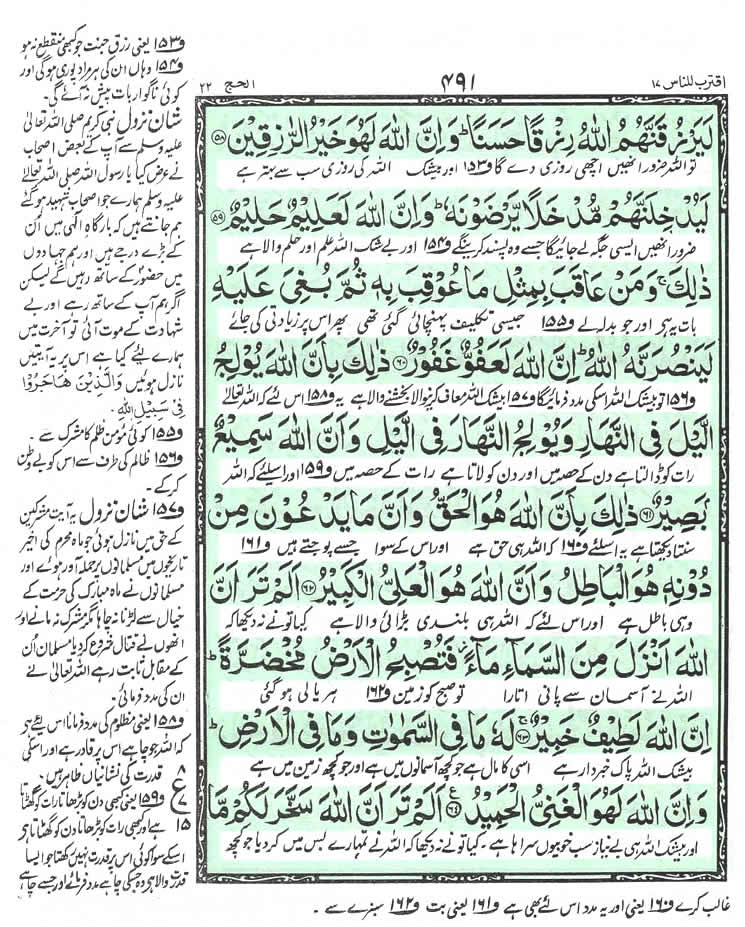 اقترب للناس ۱۷
۴۹۱
الحج ۲۲
لَيَرْزُقَنَّهُمُ اللّٰهُ رِزْقًا حَسَنًا ؕ وَاِنَّ اللّٰهَ لَهُوَ خَيْرُ الرّٰزِقِيْنَ ﴿۵۸﴾
تو اللہ ضرور انھیں اچھی روزی دے گا و۱۵۳ اور بیشک اللہ کی روزی سب سے بہتر ہے
لَيُدْخِلَنَّهُمْ مُّدْخَلًا يَّرْضَوْنَهٗ ؕ وَاِنَّ اللّٰهَ لَعَلِيْمٌ حَلِيْمٌ ﴿۵۹﴾
ضرور انھیں ایسی جگہ لے جائیگا جسے وہ پسند کرینگے و۱۵۴ اور بے شک اللہ علم اور حلم والا ہے
ذٰلِكَ ۚ وَمَنْ عَاقَبَ بِمِثْلِ مَا عُوْقِبَ بِهٖ ثُمَّ بُغِيَ عَلَيْهِ
بات یہ ہے اور جو بدلہ لے و۱۵۵ جیسی تکلیف پہنچائی گئی تھی پھر اس پر زیادتی کی جائے
لَيَنْصُرَنَّهُ اللّٰهُ ؕ اِنَّ اللّٰهَ لَعَفُوٌّ غَفُوْرٌ ﴿۶۰﴾ ذٰلِكَ بِاَنَّ اللّٰهَ يُوْلِجُ
و۱۵۶ تو بیشک اللہ اسکی مدد فرمائیگا و۱۵۷ بیشک اللہ معاف کرنیوالا بخشنے والا ہے یہ و۱۵۸ اس لئے کہ اللہ تعالیٰ
الَّيْلَ فِي النَّهَارِ وَيُوْلِجُ النَّهَارَ فِي الَّيْلِ وَاَنَّ اللّٰهَ سَمِيْعٌۢ
رات کو ڈالتا ہے دن کے حصہ میں اور دن کو لاتا ہے رات کے حصہ میں و۱۵۹ اور اسلئے کہ اللہ
بَصِيْرٌ ﴿۶۱﴾ ذٰلِكَ بِاَنَّ اللّٰهَ هُوَ الْحَقُّ وَاَنَّ مَا يَدْعُوْنَ مِنْ
سنتا دیکھتا ہے یہ اسلئے و۱۶۰ کہ اللہ ہی حق ہے اور اس کے سوا جسے پوجتے ہیں و۱۶۱
دُوْنِهٖ هُوَ الْبَاطِلُ وَاَنَّ اللّٰهَ هُوَ الْعَلِيُّ الْكَبِيْرُ ﴿۶۲﴾ اَلَمْ تَرَ اَنَّ
وہی باطل ہے اور اس لئے کہ اللہ ہی بلندی بڑائی والا ہے کیا تو نے نہ دیکھا کہ
اللّٰهَ اَنْزَلَ مِنَ السَّمَآءِ مَآءً ۫ فَتُصْبِحُ الْاَرْضُ مُخْضَرَّةً ؕ
اللہ نے آسمان سے پانی اتارا تو صبح کو زمین و۱۶۲ ہریالی ہو گئی
اِنَّ اللّٰهَ لَطِيْفٌ خَبِيْرٌ ﴿۶۳﴾ لَهٗ مَا فِي السَّمٰوٰتِ وَمَا فِي الْاَرْضِ ؕ
بیشک اللہ پاک خبردار ہے اسی کا مال ہے جو کچھ آسمانوں میں ہے اور جو کچھ زمین میں ہے
وَاِنَّ اللّٰهَ لَهُوَ الْغَنِيُّ الْحَمِيْدُ ﴿۶۴﴾ اَلَمْ تَرَ اَنَّ اللّٰهَ سَخَّرَ لَكُمْ مَّا
اور بیشک اللہ ہی بے نیاز سب خوبیوں سراہا ہے ۔ کیا تو نے نہ دیکھا کہ اللہ نے تمہارے بس میں کر دیا جو کچھ
و۱۵۳ یعنی رزق جنت جو کبھی منقطع نہ ہو
و۱۵۴ وہاں ان کی ہر مراد پوری ہوگی اور
کوئی ناگوار بات پیش نہ آئے گی ۔
شان نزول نبی کریم صلی اللہ تعالیٰ
علیہ وسلم سے آپ کے بعض اصحاب
نے عرض کیا یا رسول اللہ صلی اللہ تعالےٰ
علیہ وسلم ہمارے جو اصحاب شہید ہو گئے
ہم جانتے ہیں کہ بارگاہ الٰہی میں اُن
کے بڑے درجے ہیں اور ہم جہادوں
میں حضور کے ساتھ رہیں گے لیکن
اگر ہم آپ کے ساتھ رہے اور بے
شہادت کے موت آئی تو آخرت میں
ہمارے لئے کیا ہے اس پر یہ آیتیں
نازل ہوئیں وَالَّذِيْنَ هَاجَرُوْا
فِيْ سَبِيْلِ اللّٰهِ
و۱۵۵ کوئی مؤمن ظلم کا مشرک سے ۔
و۱۵۶ ظالم کی طرف سے اس کو بے وطن
کرکے ۔
و۱۵۷ شان نزول یہ آیت مشرکین
کے حق میں نازل ہوئی جو ماہ محرم کی اخیر
تاریخوں میں مسلمانوں پر حملہ آور ہوے اور
مسلمانوں نے ماہ مبارک کی حرمت کے
خیال سے لڑنا نہ چاہا مگر مشرک نہ مانے اور
انھوں نے قتال شروع کر دیا مسلمان اُن
کے مقابل ثابت رہے اللہ تعالیٰ نے
ان کی مدد فرمائی ۔
و۱۵۸ یعنی مظلوم کی مدد فرمانا اس لئے ہے
کہ اللہ جو چاہے اس پر قادر ہے اور اسکی
قدرت کی نشانیاں ظاہر ہیں ۔
و۱۵۹ یعنی کبھی دن کو بڑھاتا رات کو گھٹاتا
ہے اور کبھی رات کو بڑھاتا دن کو گھٹاتا ہے
اسکے سوا کوئی اس پر قدرت نہیں رکھتا جو ایسا
قدرت والا ہے وہ جسکی چاہے مدد فرمائے اور جسے چاہے
۸
ع
۱۵
غالب کرے و۱۶۰ یعنی اور یہ مدد اس لئے بھی ہے و۱۶۱ یعنی بت و۱۶۲ سبزے سے ۔